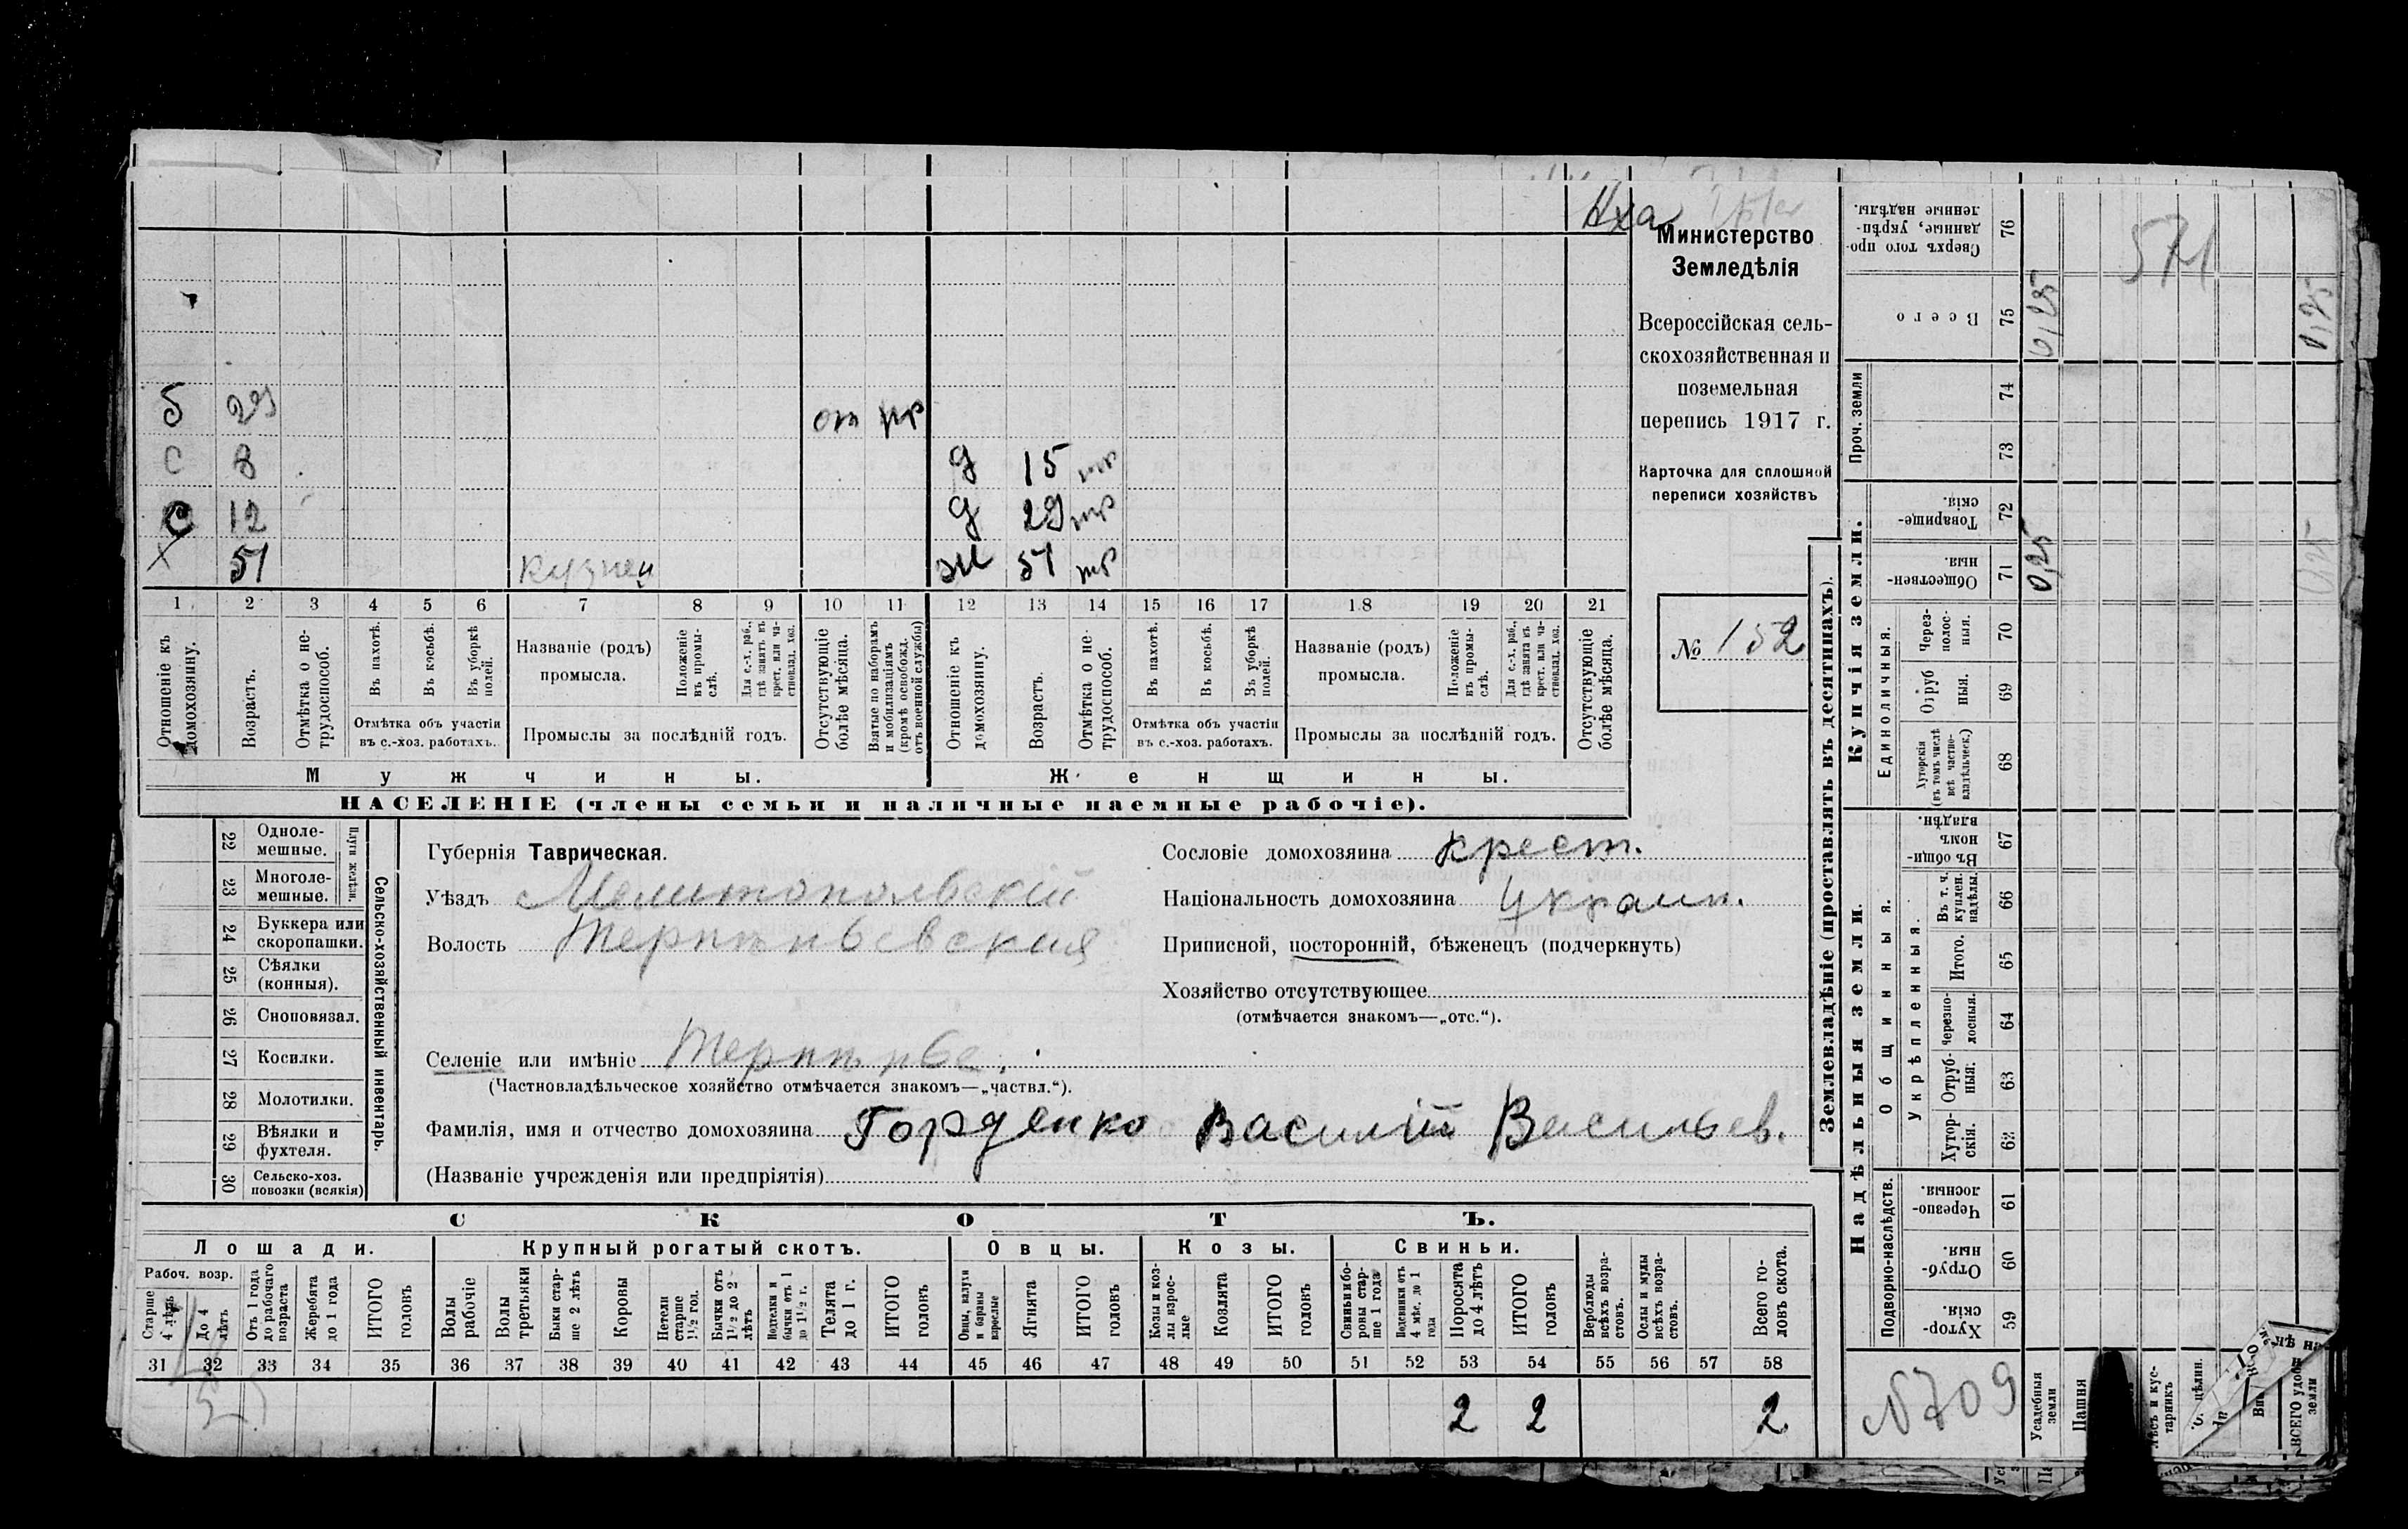 Министерство
Земледѣлія
Всероссійская сель-
скохозяйственная и
поземельная
перепись 1917 г.
Карточка для сплошной
переписи хозяйствъ
№ 152
б 29 от
с 8 д 15
с 12 д 29
х 51 кузнец ж 51
1 2 3 4 5 6 7 8 9 10 11 12 13 14 15 16 17 18 19 20 21
Отношеніе къ домохозяину.
Возрастъ.
Отмѣтка о не-трудоспособ.
Въ пахотѣ.
Въ косьбѣ.
Въ уборкѣ полей.
Отмѣтка объ участіи
въ с.-хоз. работахъ.
Названіе (родъ)
промысла.
Положеніе въ промы-слѣ.
Для с.-х. раб., гдѣ занятъ въ крест. или ча-стновлад. хоз.
Промыслы за послѣдній годъ.
Отсутствующіе болѣе мѣсяца.
Взятые по наборамъ и мобилизаціямъ (кромѣ освобожд. отъ военной службы)
Отношеніе къ домохозяину.
Возрастъ.
Отмѣтка о не-трудоспособ.
Въ пахотѣ.
Въ косьбѣ.
Въ уборкѣ полей.
Отмѣтка объ участіи
въ с.-хоз. работахъ.
Названіе (родъ)
промысла.
Положеніе въ промы-слѣ.
Для с.-х. раб., гдѣ занята въ крест. или ча-стновлад. хоз.
Промыслы за послѣдній годъ.
Отсутствующіе болѣе мѣсяца.
Мужчины. Женщины.
НАСЕЛЕНІЕ (члены семьи и наличные наемные рабочіе).
22 Одноле-мешные.
23 Многоле-мешные.
Плуги желѣзн.
24 Буккера или скоропашки.
25 Сѣялки (конныя).
26 Сноповязал.
27 Косилки.
28 Молотилки.
29 Вѣялки и фухтеля.
30 Сельско-хоз. повозки (всякія)
Сельско-хозяйственный инвентарь.
Губернія Таврическая.
Уѣздъ Мелитопольскій
Волость Терпѣньевская
Селеніе или имѣніе Терпѣнье.
(Частновладѣльческое хозяйство отмѣчается знакомъ—„частвл.“).
Сословіе домохозяина крест.
Національность домохозяина украин.
Приписной, посторонній, бѣженецъ (подчеркнуть)
Хозяйство отсутствующее
(отмѣчается знакомъ—„отс.“).
Фамилія, имя и отчество домохозяина Горденко Василій Васильев.
(Названіе учрежденія или предпріятія)
СКОТЪ.
Лошади. Крупный рогатый скотъ. Овцы. Козы. Свиньи.
Рабоч. возр.
Старше 4 лѣтъ
До 4 лѣтъ
Отъ 1 года до рабочаго возраста
Жеребята до 1 года
ИТОГО головъ
Волы рабочіе
Волы третьяки
Быки стар-ше 2 лѣтъ
Коровы
Нетели старше 1½ год.
Бычки отъ 1½ до 2 лѣтъ
Подтелки и бычки отъ 1 до 1½ г.
Телята до 1 г.
ИТОГО головъ
Овцы, валухи и бараны взрослые
Ягнята
ИТОГО головъ
Козы и коз-лы взрос-лые
Козлята
ИТОГО головъ
Свиньи и бо-ровы стар-ше 1 года
Подсвинки отъ 4 мѣс. до 1 года
Поросята до 4 лѣтъ
ИТОГО головъ
Верблюды всѣхъ возра-стовъ.
Ослы и мулы всѣхъ возра-стовъ.
Всего го-ловъ скота.
31 32 33 34 35 36 37 38 39 40 41 42 43 44 45 46 47 48 49 50 51 52 53 54 55 56 57 58
2 2 2
Землевладѣніе (проставлять въ десятинахъ).
Сверхъ того про-данные, укрѣп-ленные надѣлы. 76
Всего 75 0,25 0,25
Проч. земли 74 73
Купчія земли.
Товарище-скія. 72
Обществен-ныя. 71 0,25 0,25
Единоличныя.
Через-полос-ныя. 70
Отруб ныя. 69
Хуторскія (въ томъ числѣ всѣ частно-владѣльческ.) 68
Надѣльныя земли.
Общинныя.
Въ общин-номъ владѣн. 67
Укрѣпленныя.
Въ т. ч. куплен. надѣлы. 66
Итого. 65
Черезпо-лосныя. 64
Отруб-ныя. 63
Хутор-скія. 62
Подворно-наслѣдств.
Черезпо-лосныя. 61
Отруб-ныя. 60
Хутор-скія. 59
571
N709
Усадебныя земли
Пашня
ВСЕГО удобн земли